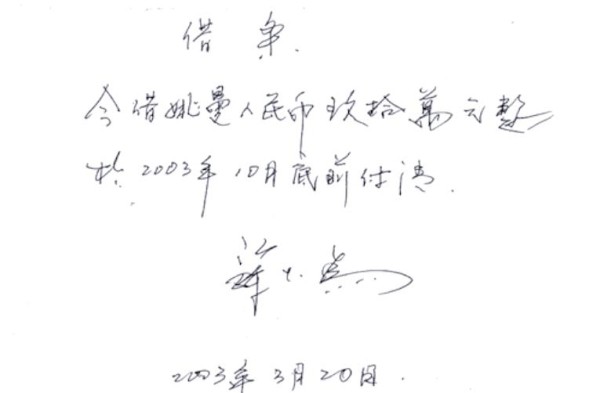 借条
今借姚曼人民币玖拾萬元整
於2003年10月底前付清.
2003年3月20日.